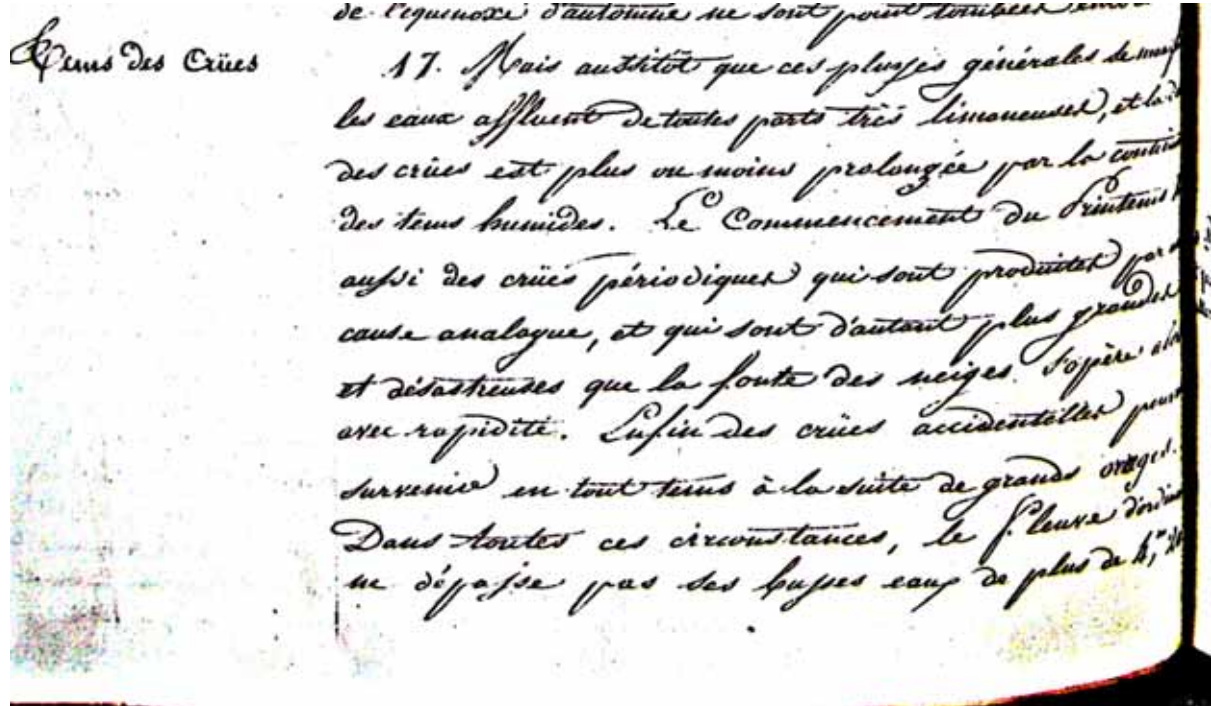 de l'équinoxe d'automne ne sont point tombées
Tems des Crües
17. Mais aussitôt que ces pluyes générales se
les eaux affluent de toutes parts très limoneuses, et la
des crües est plus ou moins prolongée par la
des tems humides. Le Commencement du Printems
aussi des crües périodiques qui sont produites par
cause analogue, et qui sont d'autant plus grandes
et désastreuses que la fonte des neiges s'opère
avec rapidité. Enfin des crües accidentelles
survenir en tout tems à la suite de grands orages.
Dans toutes ces circonstances, le fleuve
ne dépasse pas ses basses eaux de plus de 4,m